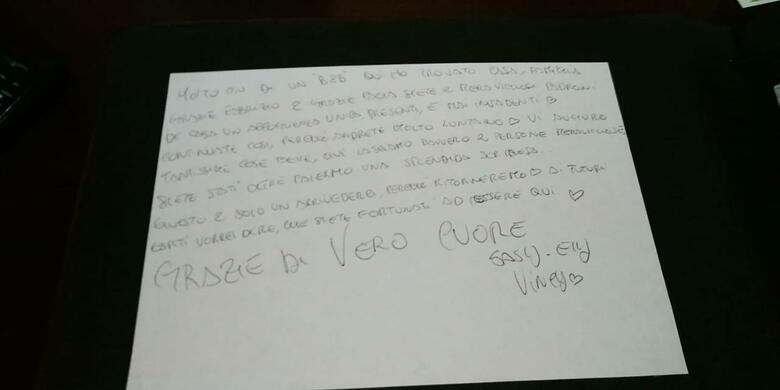 MOLTO PIÙ DI UN "B&B" QUI HO TROVATO CASA, FAMIGLIA
GRAZIE FABRIZIO E GRAZIE PAOLA SIETE 2 MERAVIGLIOSI PADRONI
DI CASA UN ACCOGLIENZA UNICA PRESENTI, E MAI INVADENTI ♡
CONTINUATE COSÌ, PERCHÉ ANDRETE MOLTO LONTANO ♡ VI AUGURO
TANTISSIME COSE BELLE, QUI LASCIAMO DAVVERO 2 PERSONE MERAVIGLIOSE
SIETE STATI OLTRE PALERMO UNA SPLENDIDA SCOPERTA...
QUESTO È SOLO UN ARRIVEDERCI, PERCHÉ RITORNEREMO ♡ AI FUTURI
OSPITI VORREI DIRE, CHE SIETE FORTUNATI AD ESSERE QUI ♡
GRAZIE DI VERO CUORE